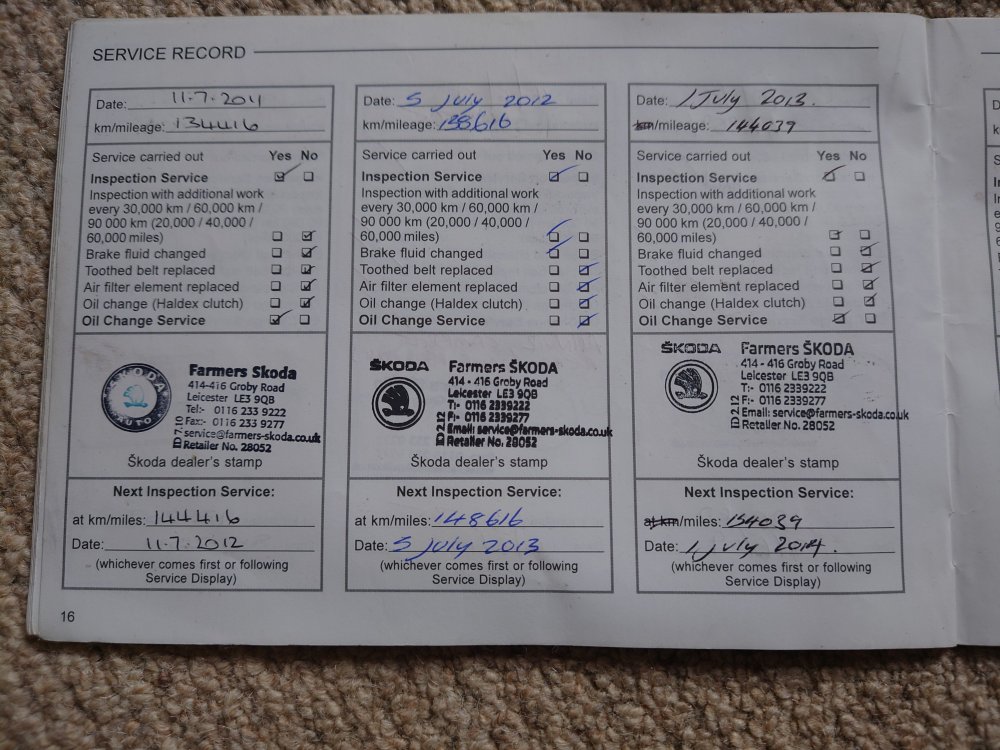 SERVICE RECORD
Date: 11.7.2011
km/mileage: 134416
Service carried out Yes No
Inspection Service
Inspection with additional work
every 30,000 km / 60,000 km /
90 000 km (20,000 / 40,000 /
60,000 miles)
Brake fluid changed
Toothed belt replaced
Air filter element replaced
Oil change (Haldex clutch)
Oil Change Service
ŠKODA
Farmers Skoda
414-416 Groby Road
Leicester LE3 9QB
Tel:- 0116 233 9222
Fax:- 0116 233 9277
service@farmers-skoda.co.uk
Retailer No. 28052
ID 7.10
Škoda dealer's stamp
Next Inspection Service:
at km/miles: 144416
Date: 11.7.2012
(whichever comes first or following
Service Display)
Date: 5 July 2012
km/mileage: 138616
Service carried out Yes No
Inspection Service
Inspection with additional work
every 30,000 km / 60,000 km /
90 000 km (20,000 / 40,000 /
60,000 miles)
Brake fluid changed
Toothed belt replaced
Air filter element replaced
Oil change (Haldex clutch)
Oil Change Service
ŠKODA
Farmers ŠKODA
414 - 416 Groby Road
Leicester LE3 9QB
T:- 0116 2339222
F:- 0116 2339277
Email: service@farmers-skoda.co.uk
Retailer No. 28052
ID 2.12
Škoda dealer's stamp
Next Inspection Service:
at km/miles: 148616
Date: 5 July 2013
(whichever comes first or following
Service Display)
Date: 1 July 2013.
km/mileage: 144039
Service carried out Yes No
Inspection Service
Inspection with additional work
every 30,000 km / 60,000 km /
90 000 km (20,000 / 40,000 /
60,000 miles)
Brake fluid changed
Toothed belt replaced
Air filter element replaced
Oil change (Haldex clutch)
Oil Change Service
ŠKODA
Farmers ŠKODA
414 - 416 Groby Road
Leicester LE3 9QB
T:- 0116 2339222
F:- 0116 2339277
Email: service@farmers-skoda.co.uk
Retailer No. 28052
ID 2.12
Škoda dealer's stamp
Next Inspection Service:
at km/miles: 154039
Date: 1 July 2014.
(whichever comes first or following
Service Display)
16